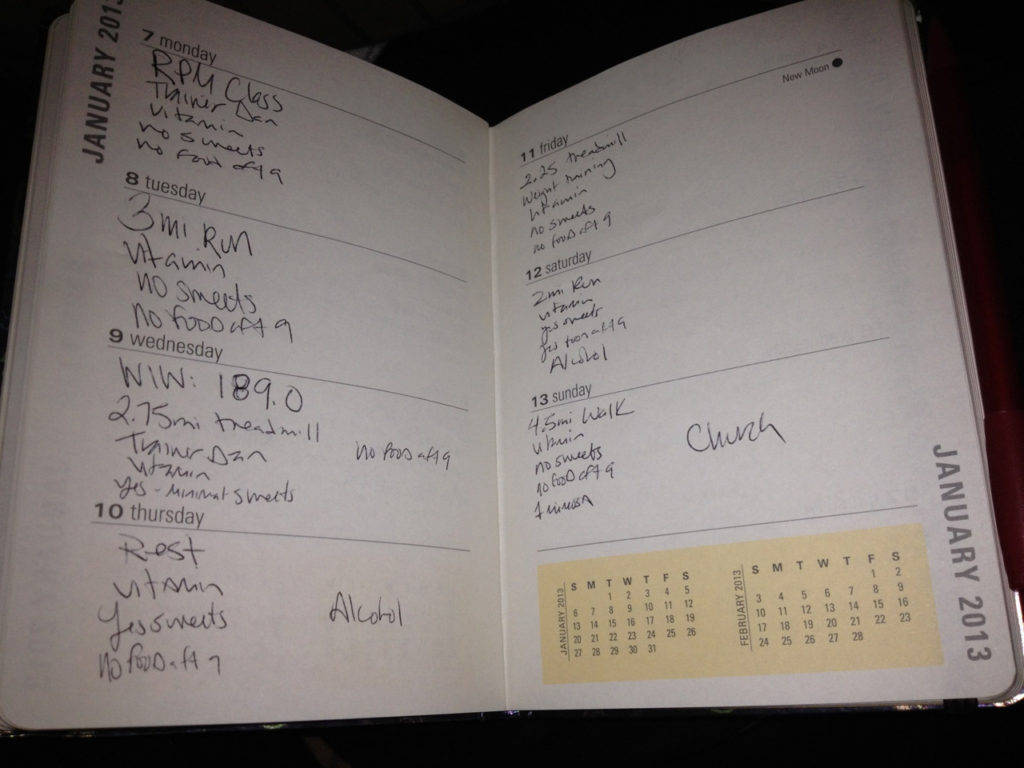 JANUARY 2013
7 monday
RPM Class
Trainer Dan
vitamin
no sweets
no food aft 9
8 tuesday
3 mi Run
vitamin
no sweets
no food aft 9
9 wednesday
WIW: 189.0
2.75mi treadmill
Trainer Dan
no food aft 9
vitamin
yes - minimal sweets
10 thursday
Rest
vitamin
Yes sweets
Alcohol
no food aft 9
New Moon
11 friday
2.25 treadmill
weight training
vitamin
no sweets
no food aft 9
12 saturday
2mi Run
vitamin
yes sweets
yes food aft 9
Alcohol
13 sunday
4.5mi Walk
vitamin
no sweets
no food aft 9
1 mimosa
Church
JANUARY 2013
S M T W T F S
1 2 3 4 5
6 7 8 9 10 11 12
13 14 15 16 17 18 19
20 21 22 23 24 25 26
27 28 29 30 31
FEBRUARY 2013
S M T W T F S
1 2
3 4 5 6 7 8 9
10 11 12 13 14 15 16
17 18 19 20 21 22 23
24 25 26 27 28
JANUARY 2013